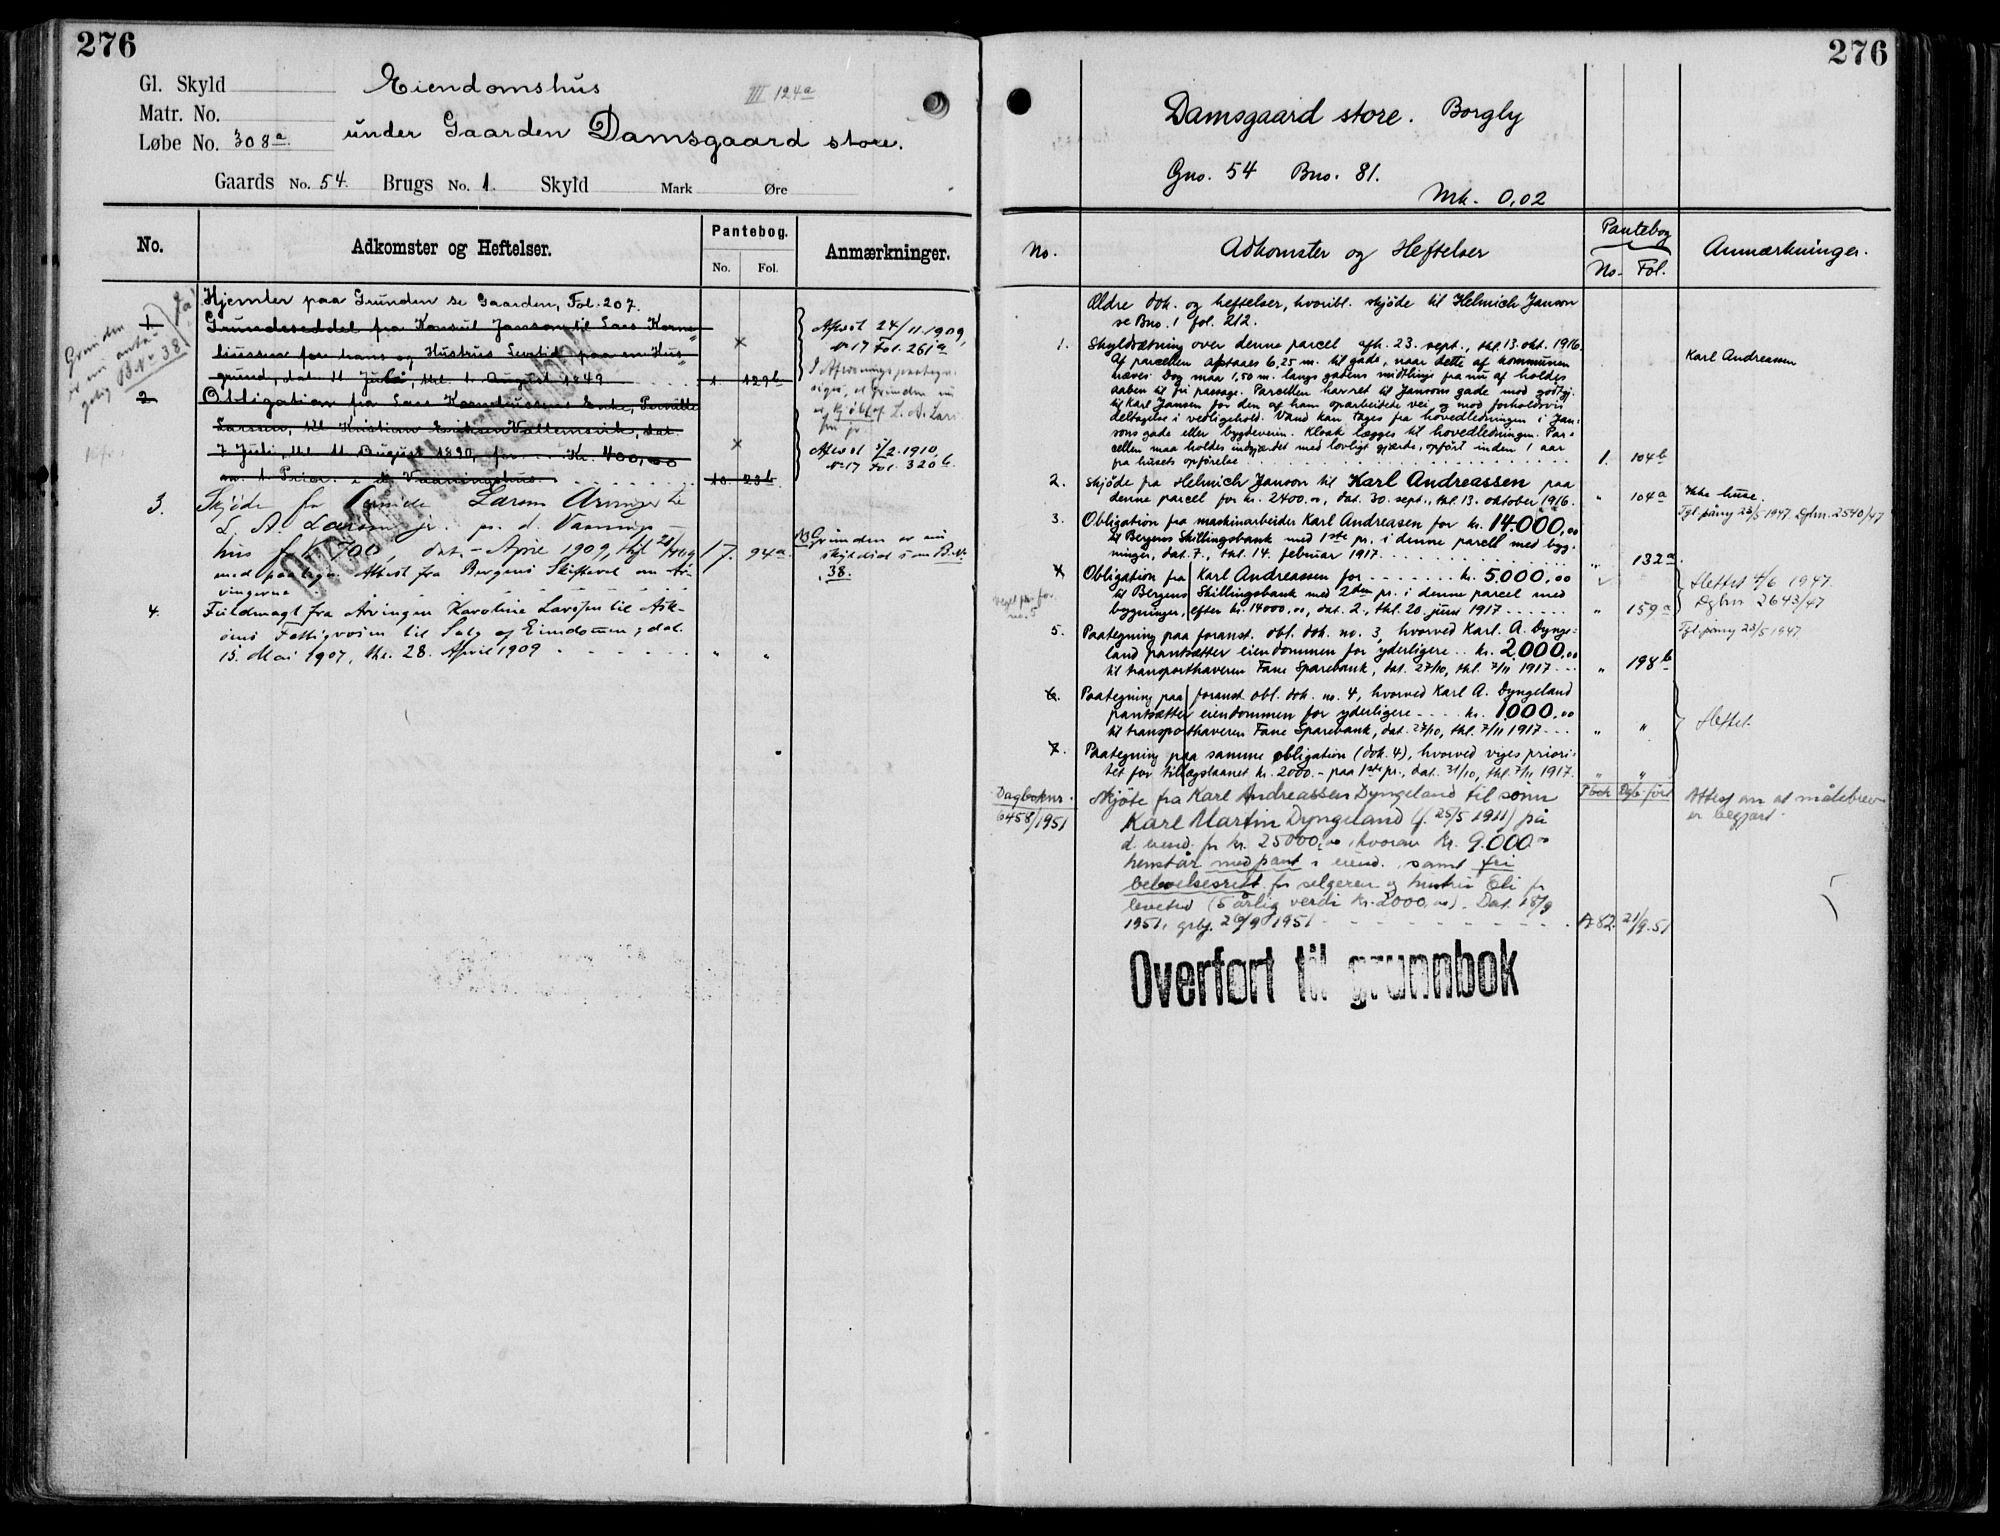 276
Gl. Skyld
Matr. No.
Løbe No. 308a.
Eiendomshus
III 124a
under Gaarden Damsgaard store.
Gaards No. 54. Brugs No. 1. Skyld Mark Øre
No. Adkomster og Heftelser. Pantebog. Anmærkninger.
No. Fol.
Grunden
er nu
B.No 38
Hjemler paa Grunden se Gaarden, Fol. 207.
1 Grundeseddel fra Konsul Janson til Lars Korne-
liussen for hans og Hustrus Levetid paa en Hus-
grund, dat. 11 Juli, thl. 1. August 1849 1 129b
Aflæst 24/11 1909,
No 17 Fol. 261a
2 Obligation fra Lars Korneliussens Enke, Pernille
Larsen, til Kristian Eriksen Vallemsvik, dat.
7 Juli, thl. 11 August 1890, for Kr. 400,00
1 Prior. i Vaaningshus 10 23b
Aflæst 5/2 1910,
No 17 Fol. 320b.
3. Skjøde fra Larsen Arvinger til
L. A. Larsen jr. paa d. Vaanings-
hus f. Kr. 700, dat. - April 1909, thl. 28/4 09 17. 94a
med paategn. Attest fra Bergens Skifteret om Ar-
vingerne
NB Grunden er nu
skyldsat som B.No.
38.
4. Fuldmagt fra Arvingen Karoline Larsen til Ask-
öens Fattigvæsen til Salg af Eiendommen, dat.
15. Mai 1907, thl. 28. April 1909 " "
Overført til grunnbok
276
Damsgaard store. Borgly
Gno. 54 Bno. 81.
Mk. 0,02
No. Adkomster og Heftelser Pantebog Anmærkninger.
No. Fol.
Ældre dok. og heftelser, hvoribl. skjøde til Helmich Janson
se Bno. 1 fol. 212.
1. Skyldsætning over denne parcel afh. 23. sept., thl. 13. okt. 1916.
Af parcellen afstaaes 6,25 m. til gade, naar dette af kommunen
kræves. Dog maa 1,50 m. langs gadens midtlinje fra nu af holdes
aaben til fri passage. Parcellen har ret til Jansons gade mod godtgj.
til Karl Jansen for den af ham oparbeidede vei og mod forholdsvis
deltagelse i vedligehold. Vand kan tages fra hovedledningen i Jan-
sons gade eller bygdeveien. Kloak lægges til hovedledningen. Par-
cellen maa holdes indgjærdet med lovligt gjærde, opført inden 1 aar
fra husets opførelse 1. 104b
Karl Andreassen
2. Skjøde fra Helmich Janson til Karl Andreassen paa
denne parcel for kr. 2400.00, dat. 30. sept., thl. 13. oktober 1916. " 104a
Ikke huse.
3. Obligation fra maskinarbeider Karl Andreasen for kr. 14.000,00
til Bergens Skillingsbank med 1ste pr. i denne parcel med byg-
ninger, dat. 7., thl. 14. februar 1917. " 132a
Tgl. påny 23/5 1947. Dgbnr. 2540/47
4 Obligation fra Karl Andreassen for kr. 5.000,00
til Bergens Skillingsbank med 2den pr. i denne parcel med
bygninger, efter kr. 14000,00, dat. 2., thl. 20. juni 1917 " 159a
Slettet 4/6 1947.
Dgbnr 2643/47
5. Paategning paa foranst. obl. dok. no. 3, hvorved Karl. A. Dynge-
land pantsætter eiendommen for yderligere kr. 2000,00
til transporthaveren Fane Sparebank, dat. 27/10, thl. 7/11 1917 " 198b
Tgl. påny 23/5 1947
6. Paategning paa foranst. obl. dok. no. 4, hvorved Karl A. Dyngeland
pantsætter eiendommen for yderligere kr. 1000,00
til transporthaveren Fane Sparebank, dat. 27/10, thl. 7/11 1917 " "
Slettet.
7. Paategning paa samme obligation (dok. 4), hvorved viges priori-
tet for tillægslaanet kr. 2000.- paa 1ste pr., dat. 31/10, thl. 7/11 1917. " "
Dagboknr. 6458/1951
Skjøte fra Karl Andreassen Dyngeland til sønn
Karl Martin Dyngeland (f. 25/5 1911) på
d. eiend. for kr. 25000,00, hvorav kr. 9.000.00
henstår med pant i eiend., samt fri
beboelsesrett for selgeren og hustru Eli for
levetid (5 årlig verdi kr. 2000,00). Dat. 18/9
1951, 1951 A 82. 21/9.51
Attest om at målebrev
er begjært.
Overført til grunnbok